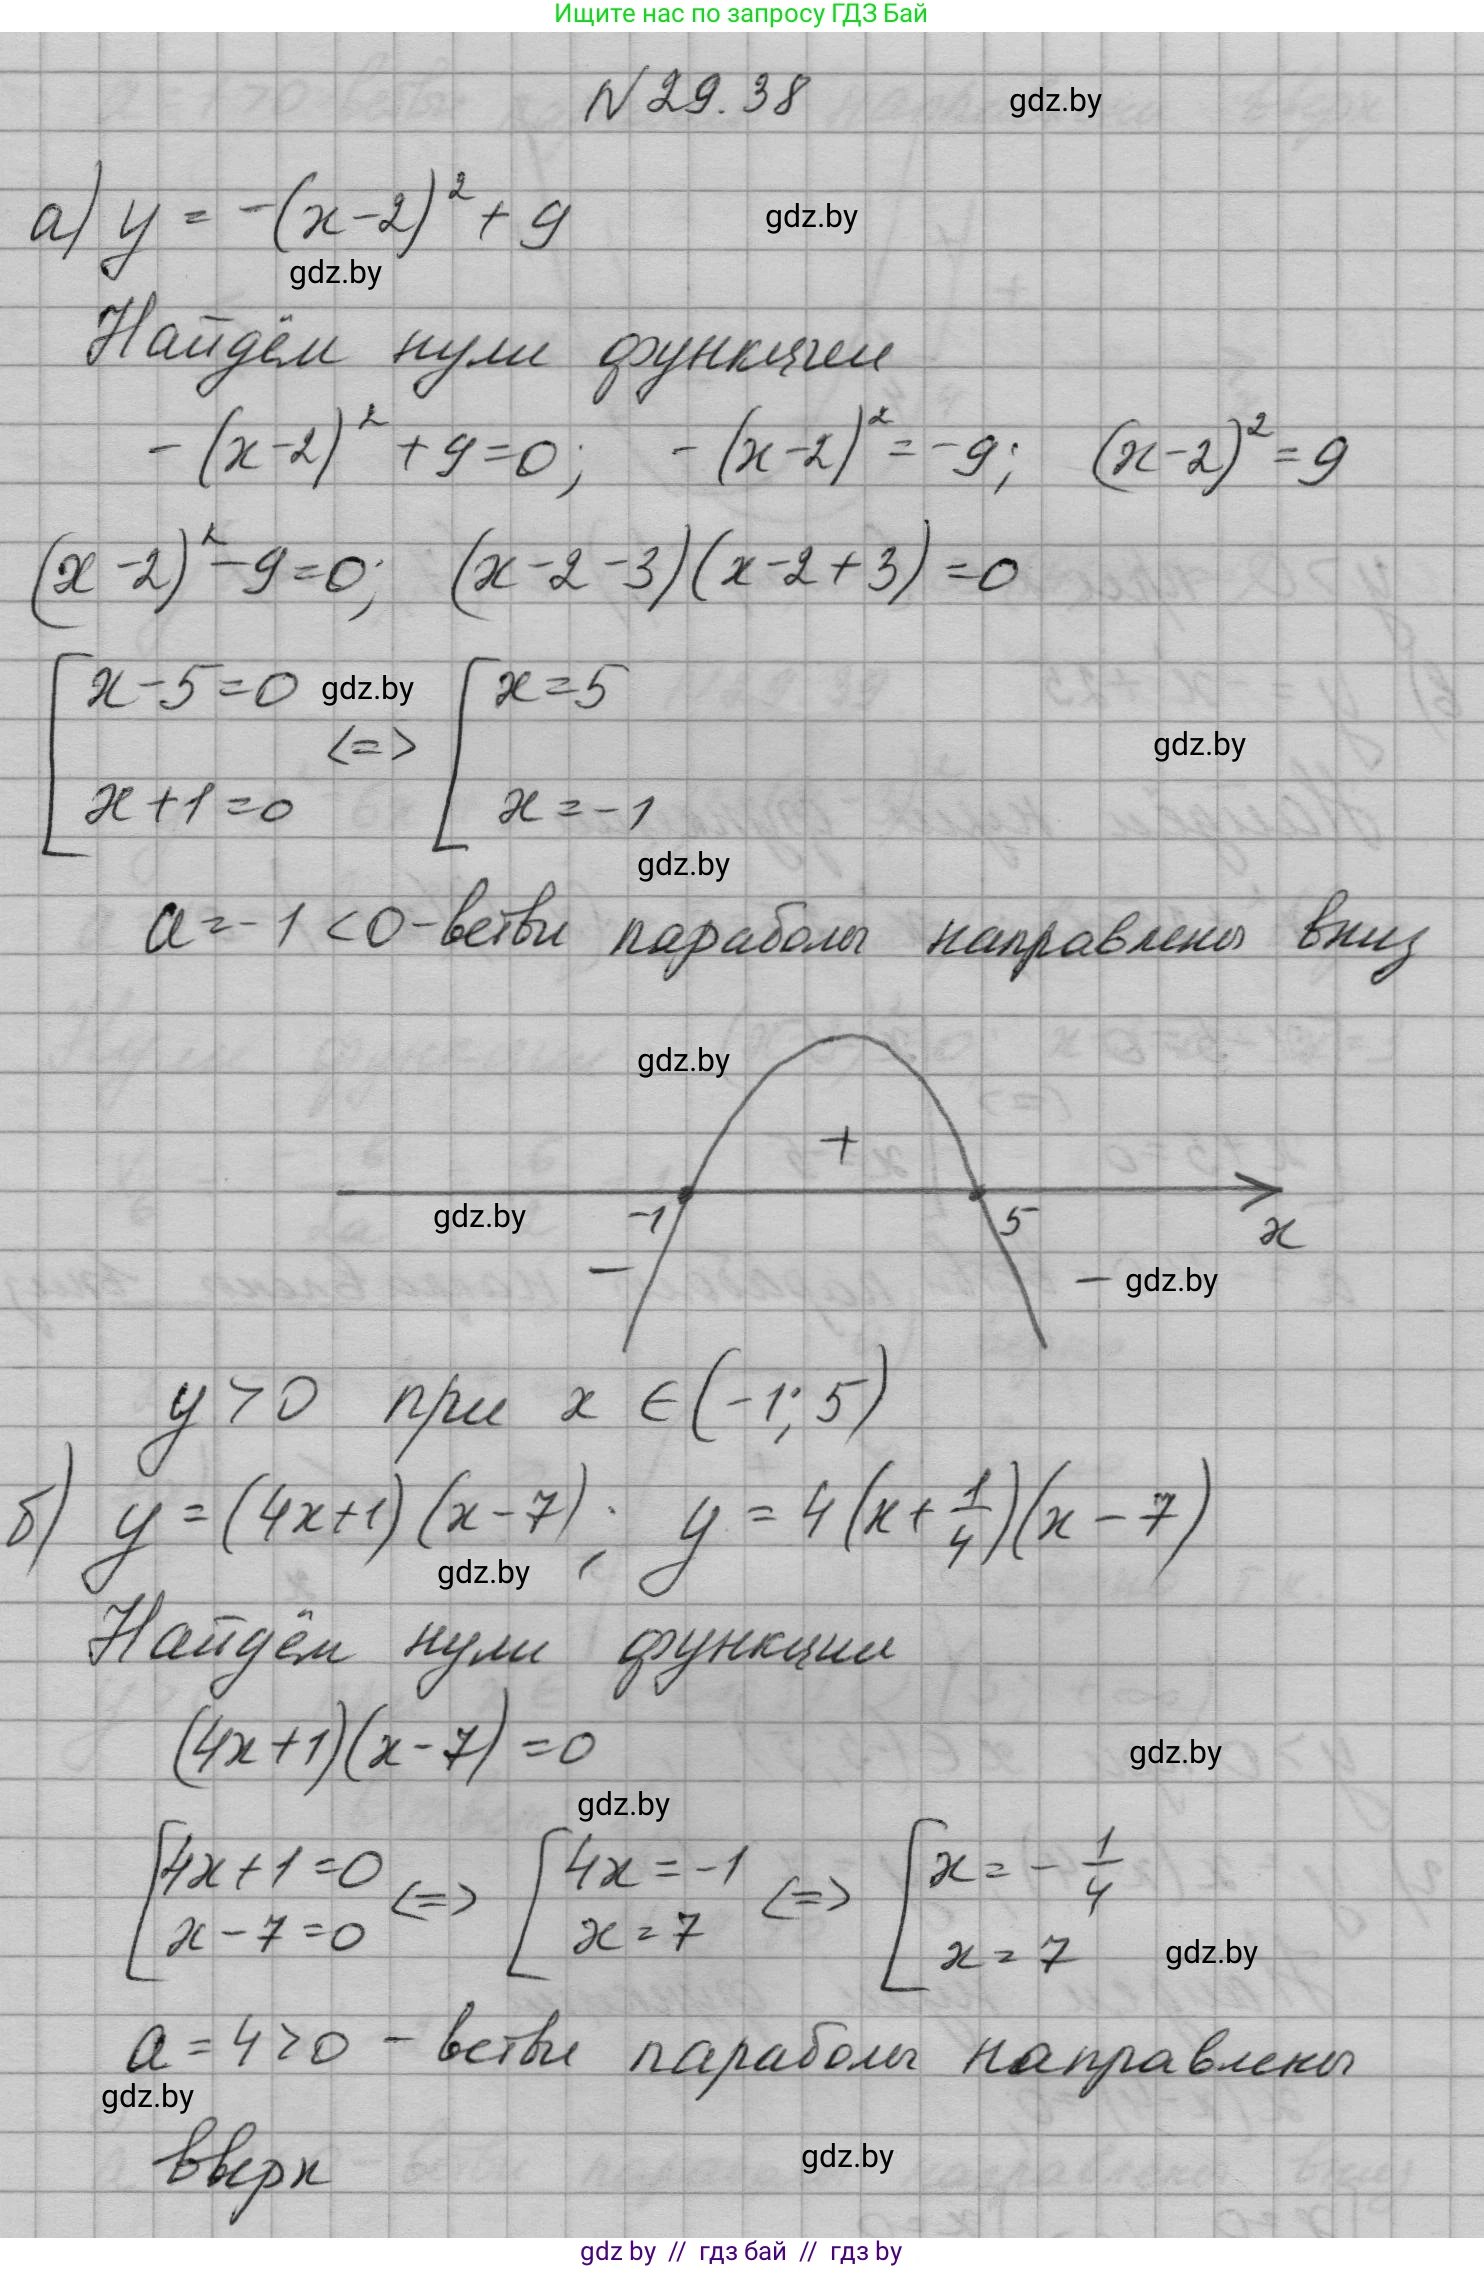 Ищите нас по запросу ГДЗ Бай
N 29.38
gdz.by
а) y = -(x-2)² + 9
gdz.by
gdz.by
Найдём нули функции
-(x-2)² + 9 = 0; -(x-2)² = -9; (x-2)² = 9
(x-2)² - 9 = 0; (x-2-3)(x-2+3) = 0
[ x-5=0 gdz.by [ x=5
<=>
gdz.by
x+1=0 x=-1
gdz.by
a=-1<0 - ветви параболы направлены вниз
gdz.by
+
gdz.by -1 5 x
- - gdz.by
y>0 при x ∈ (-1; 5)
б) y = (4x+1)(x-7); y = 4(x + 1/4)(x-7)
gdz.by
Найдём нули функции
(4x+1)(x-7) = 0
gdz.by
gdz.by
[ 4x+1=0 <=> [ 4x=-1 <=> [ x=-1/4
x-7=0 x=7 x=7 gdz.by
a=4>0 - ветви параболы направлены
gdz.by
вверх
gdz.by
gdz by // гдз бай // гдз by